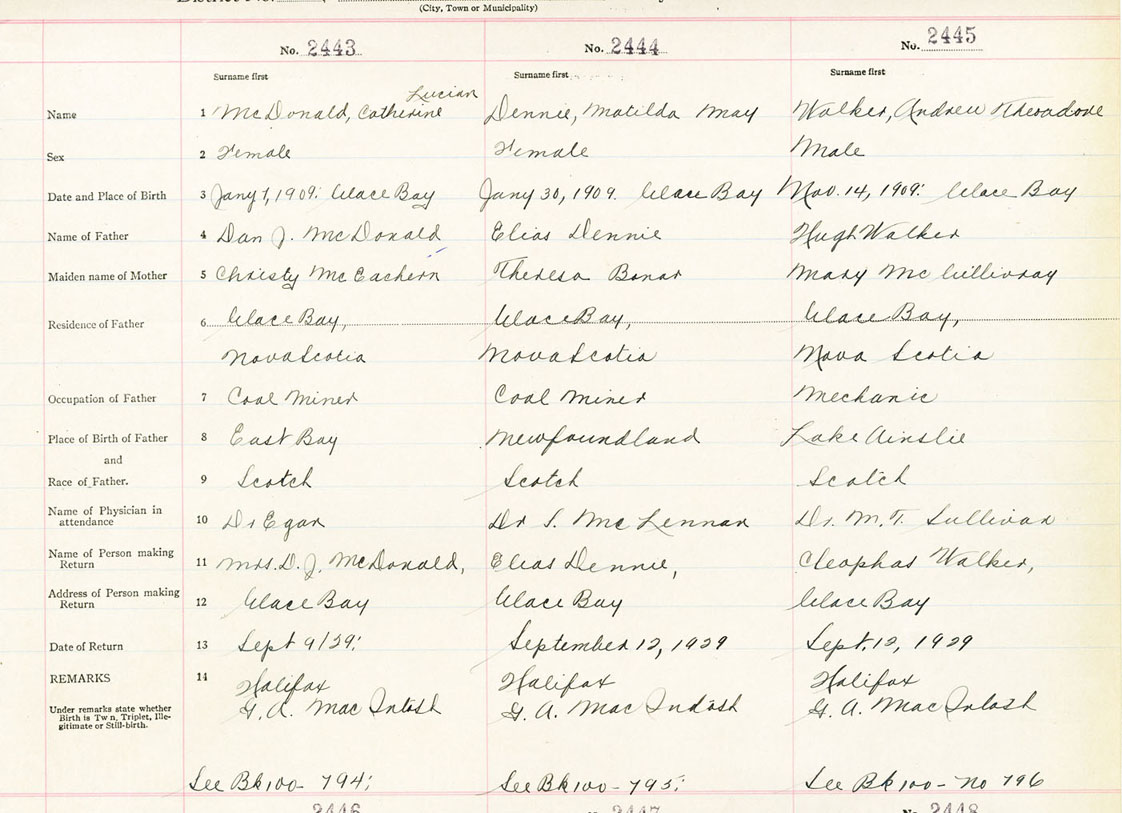 (City, Town or Municipality)
No. 2443 No. 2444 No. 2445
Surname first Surname first Surname first
Lucian
Name 1 McDonald, Catherine Dennie, Matilda May Walker, Andrew Theoadore
Sex 2 Female Female Male
Date and Place of Birth 3 Jany 7, 1909. Glace Bay Jany 30, 1909. Glace Bay Nov. 14, 1909. Glace Bay
Name of Father 4 Dan J. McDonald Elias Dennie Hugh Walker
Maiden name of Mother 5 Christy McEachern Theresa Bonar Mary McGillivray
Residence of Father 6 Glace Bay, Glace Bay, Glace Bay,
Nova Scotia Nova Scotia Nova Scotia
Occupation of Father 7 Coal Miner Coal Miner Mechanic
Place of Birth of Father 8 East Bay Newfoundland Lake Ainslie
and
Race of Father. 9 Scotch Scotch Scotch
Name of Physician in
attendance 10 Dr Egan Dr S. McLennan Dr. M. T. Sullivan
Name of Person making
Return 11 Mrs. D. J. McDonald, Elias Dennie, Cleophas Walker,
Address of Person making
Return 12 Glace Bay Glace Bay Glace Bay
Date of Return 13 Sept 9/29. September 12, 1929 Sept. 12, 1929
REMARKS 14 Halifax Halifax Halifax
G. A. MacIntosh G. A. MacIntosh G. A. MacIntosh
Under remarks state whether
Birth is Twn, Triplet, Ille-
gitimate or Still-birth.
See Bk 100- 794. See Bk 100- 795. See Bk 100- No 796
2446 2447 No. 2448